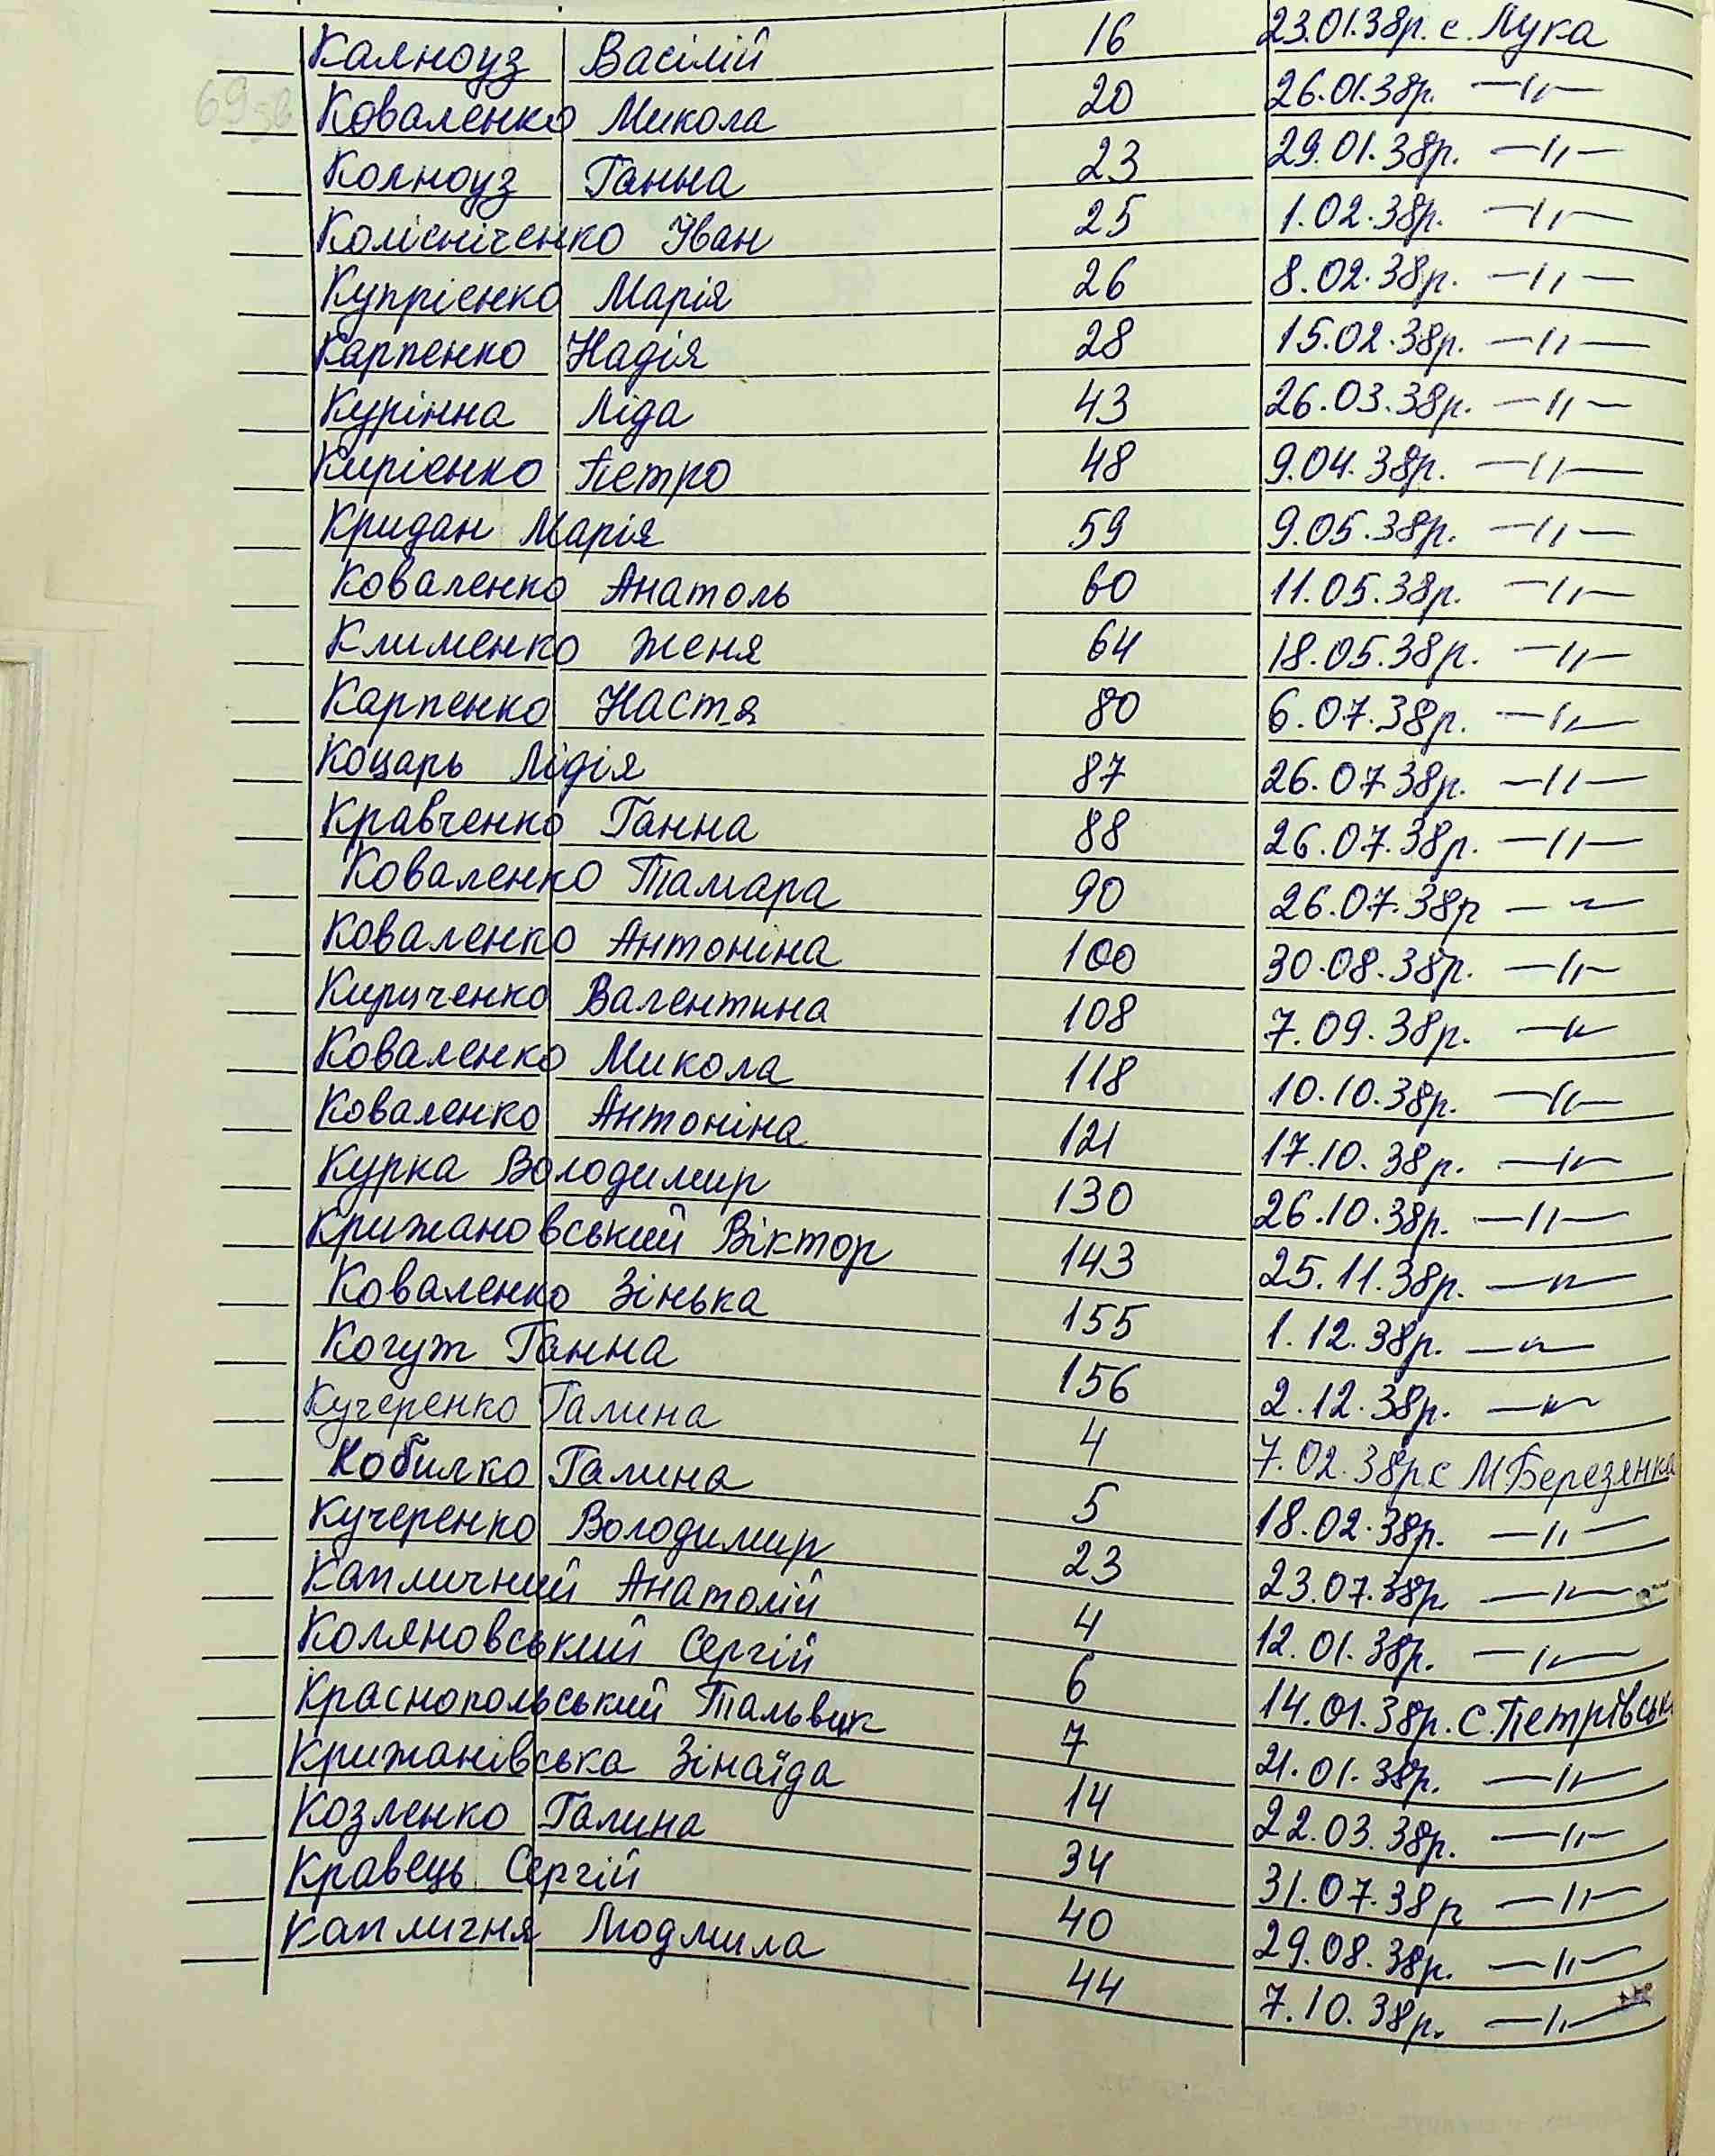 Калноуз Васілій 16 23.01.38р. с. Лука
Коваленко Микола 20 26.01.38р. —"—
Колноуз Ганна 23 29.01.38р. —"—
Колісніченко Іван 25 1.02.38р. —"—
Купрієнко Марія 26 8.02.38р. —"—
Карпенко Надія 28 15.02.38р. —"—
Курінна Ліда 43 26.03.38р. —"—
Кирієнко Петро 48 9.04.38р. —"—
Кридан Марія 59 9.05.38р. —"—
Коваленко Анатоль 60 11.05.38р. —"—
Клименко Женя 64 18.05.38р. —"—
Карпенко Настя 80 6.07.38р. —"—
Коцарь Лідія 87 26.07.38р. —"—
Кравченко Ганна 88 26.07.38р. —"—
Коваленко Тамара 90 26.07.38р —"—
Коваленко Антоніна 100 30.08.38р. —"—
Кириченко Валентина 108 7.09.38р. —"—
Коваленко Микола 118 10.10.38р. —"—
Коваленко Антоніна 121 17.10.38р. —"—
Курка Володимир 130 26.10.38р. —"—
Крижановський Віктор 143 25.11.38р. —"—
Коваленко Зінька 155 1.12.38р. —"—
Когут Ганна 156 2.12.38р. —"—
Кучеренко Галина 4 7.02.38р с М Березянка
Кобилко Галина 5 18.02.38р. —"—
Кучеренко Володимир 23 23.07.38р. —"—
Капличний Анатолій 4 12.01.38р. —"—
Коляновський Сергій 6 14.01.38р. с. Петрівськ
Краснопольський 7 21.01.38р. —"—
Крижанівська Зінаїда 14 22.03.38р. —"—
Козленко Галина 34 31.07.38р —"—
Кравець Сергій 40 29.08.38р. —"—
Капличня Людмила 44 7.10.38р. —"—